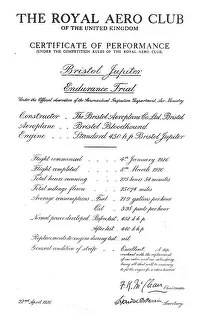 THE ROYAL AERO CLUB
OF THE UNITED KINGDOM
CERTIFICATE OF PERFORMANCE
(UNDER THE COMPETITION RULES OF THE ROYAL AERO CLUB)
Bristol Jupiter
Endurance Trial
Under the Official observation of the Aeronautical Inspection Department Air Ministry
Constructor The Bristol Aeroplane Co. Ltd. Bristol
Aeroplane Bristol Bloodhound
Engine Standard 450 h.p. Bristol Jupiter
Flight commenced 4th January 1926
Flight completed 8th March 1926
Total hours running 225 hours 54 minutes
Total mileage flown 25074 miles
Average consumption Fuel 21.9 gallons per hour
Oil pints per hour
Normal power developed Before test 452 b.h.p.
After test 440 b.h.p.
Replacements to engine during test nil
General condition of strip Excellent.
Chairman
22nd April 1926. Secretary